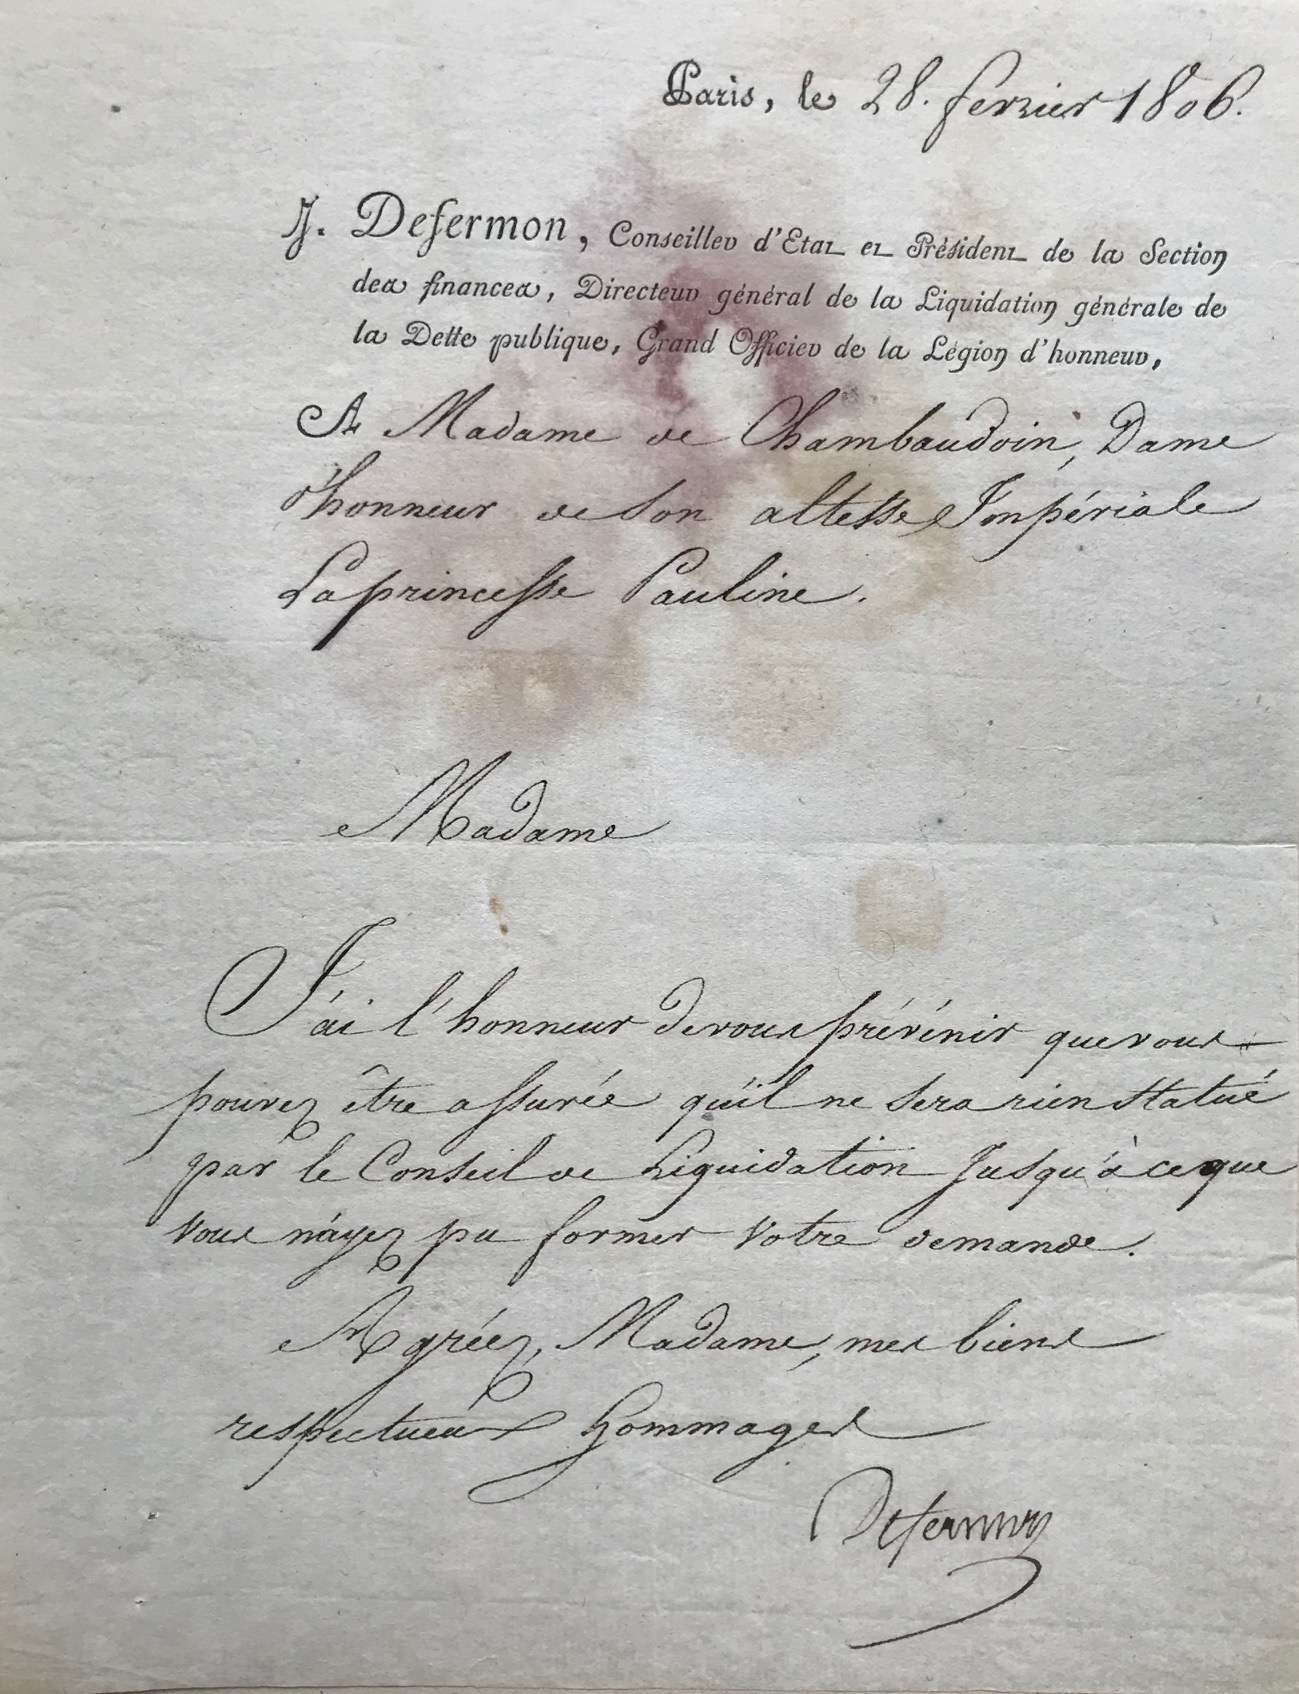 Paris, le 28. fevrier 1806.
J. Defermon, Conseiller d'Etat et Président de la Section
des finances, Directeur général de la Liquidation générale de
la Dette publique, Grand Officier de la Légion d'honneur,
A Madame de Chambaudoin, Dame
d'honneur de Son altesse Impériale
La princesse Pauline.
Madame
J'ai l'honneur de vous prévénir que vous
pouvez être assurée qu'il ne sera rien statué
par le Conseil de Liquidation Jusqu'à ce que
vous n'ayez pu former votre demande.
Agréez, Madame, mes biens
respectueux hommages
Defermon